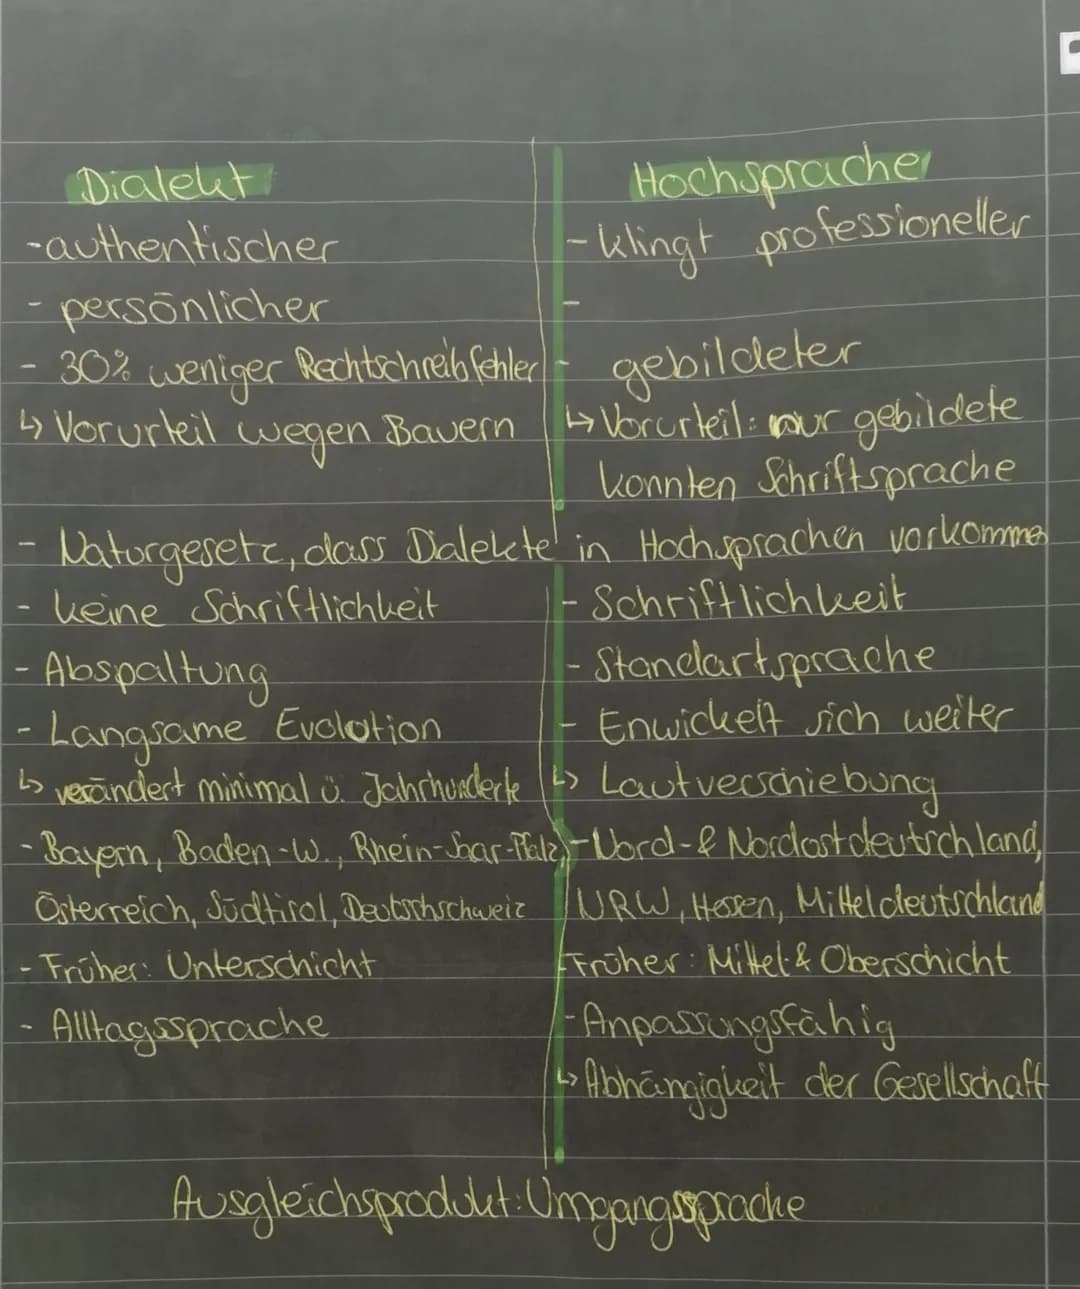 Dialekt
-authentischer
- persönlicher
- 30% weniger Rechtschreibfehler
↳ Vorurteil wegen Bauern
Hochsprache
- klingt professioneller
-
- gebildeter
↳ Vorurteil: nur gebildete
konnten Schriftsprache
- Naturgesetz, dass Dialekte in Hochsprachen vorkommen
- keine Schriftlichkeit
- Abspaltung
- Langsame Evolution
↳ verändert minimal ü. Jahrhunderte
- Bayern, Baden-W., Rhein-Saar-Pfalz,
Österreich, Südtirol, Deutschschweiz
- Früher: Unterschicht
- Alltagssprache
- Schriftlichkeit
- Standartsprache
- Enwickelt sich weiter
↳ Lautverschiebung
- Nord- & Nordostdeutschland,
NRW, Hessen, Mitteldeutschland
- Früher: Mittel & Oberschicht
- Anpassungsfähig
↳ Abhängigkeit der Gesellschaft
Ausgleichsprodukt: Umgangssprache